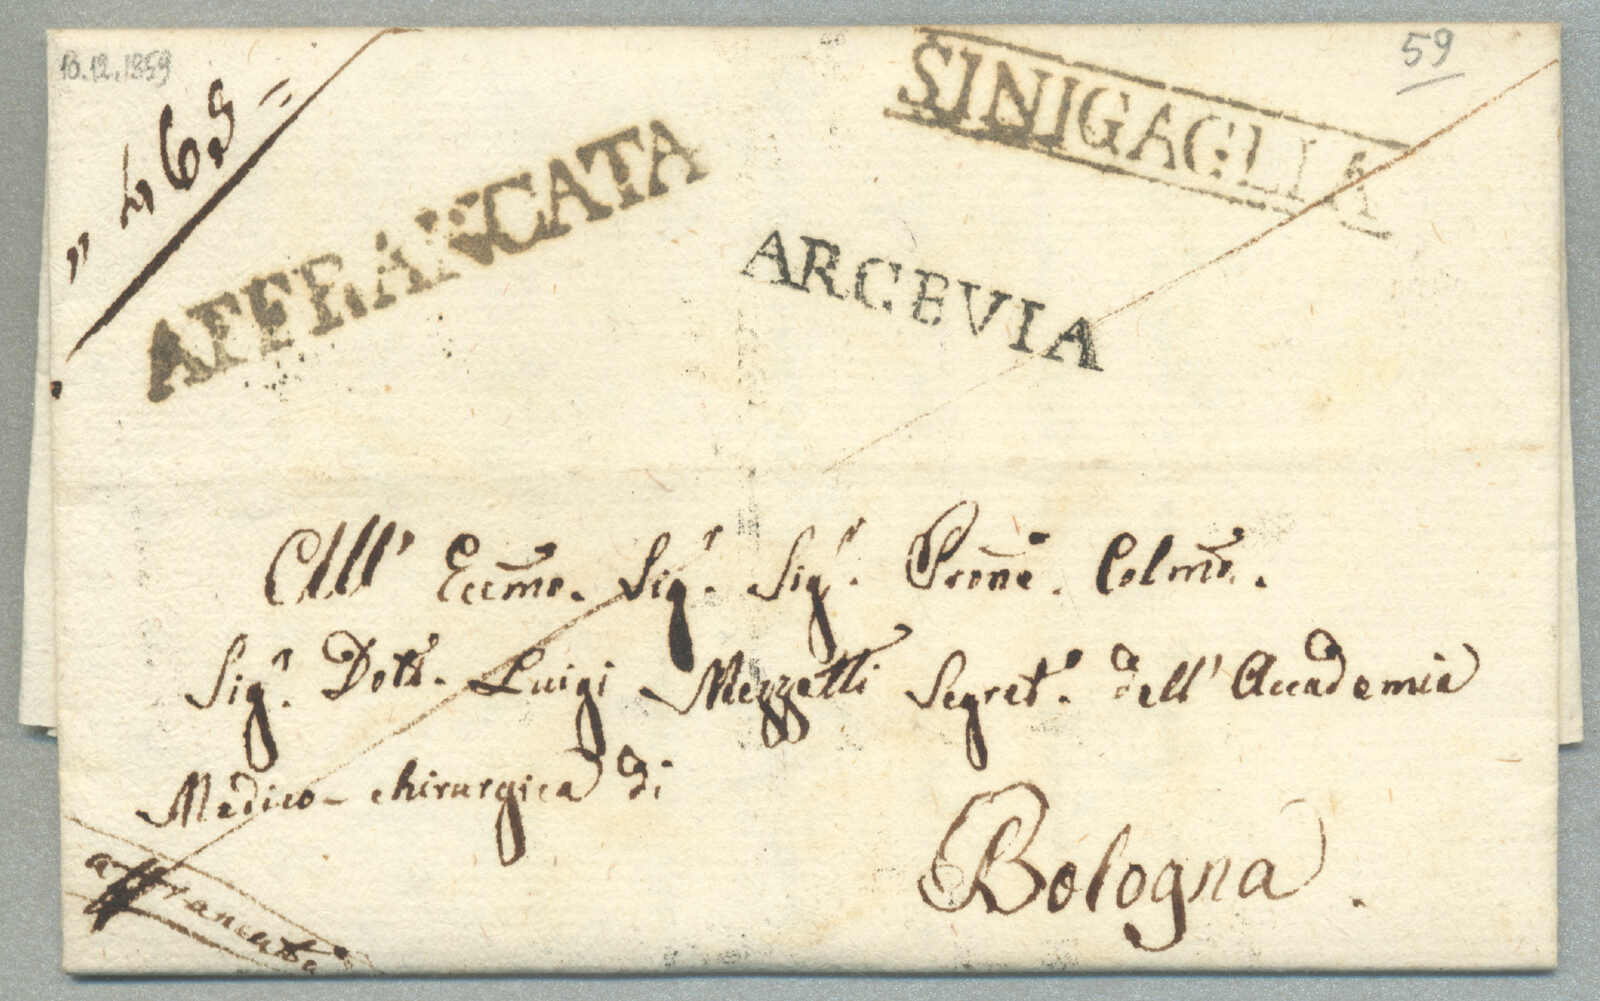 10.12.1859
59
" 465 =
AFFRANCATA
SINIGAGLIA
ARCEVIA
All' Eccmo. Sigr. Sigr. Prone. Colmo.
Sigr. Dott. Luigi Mezzetti Segret. dell' Accademia
Medico-chirurgica di
Bologna.
affrancata